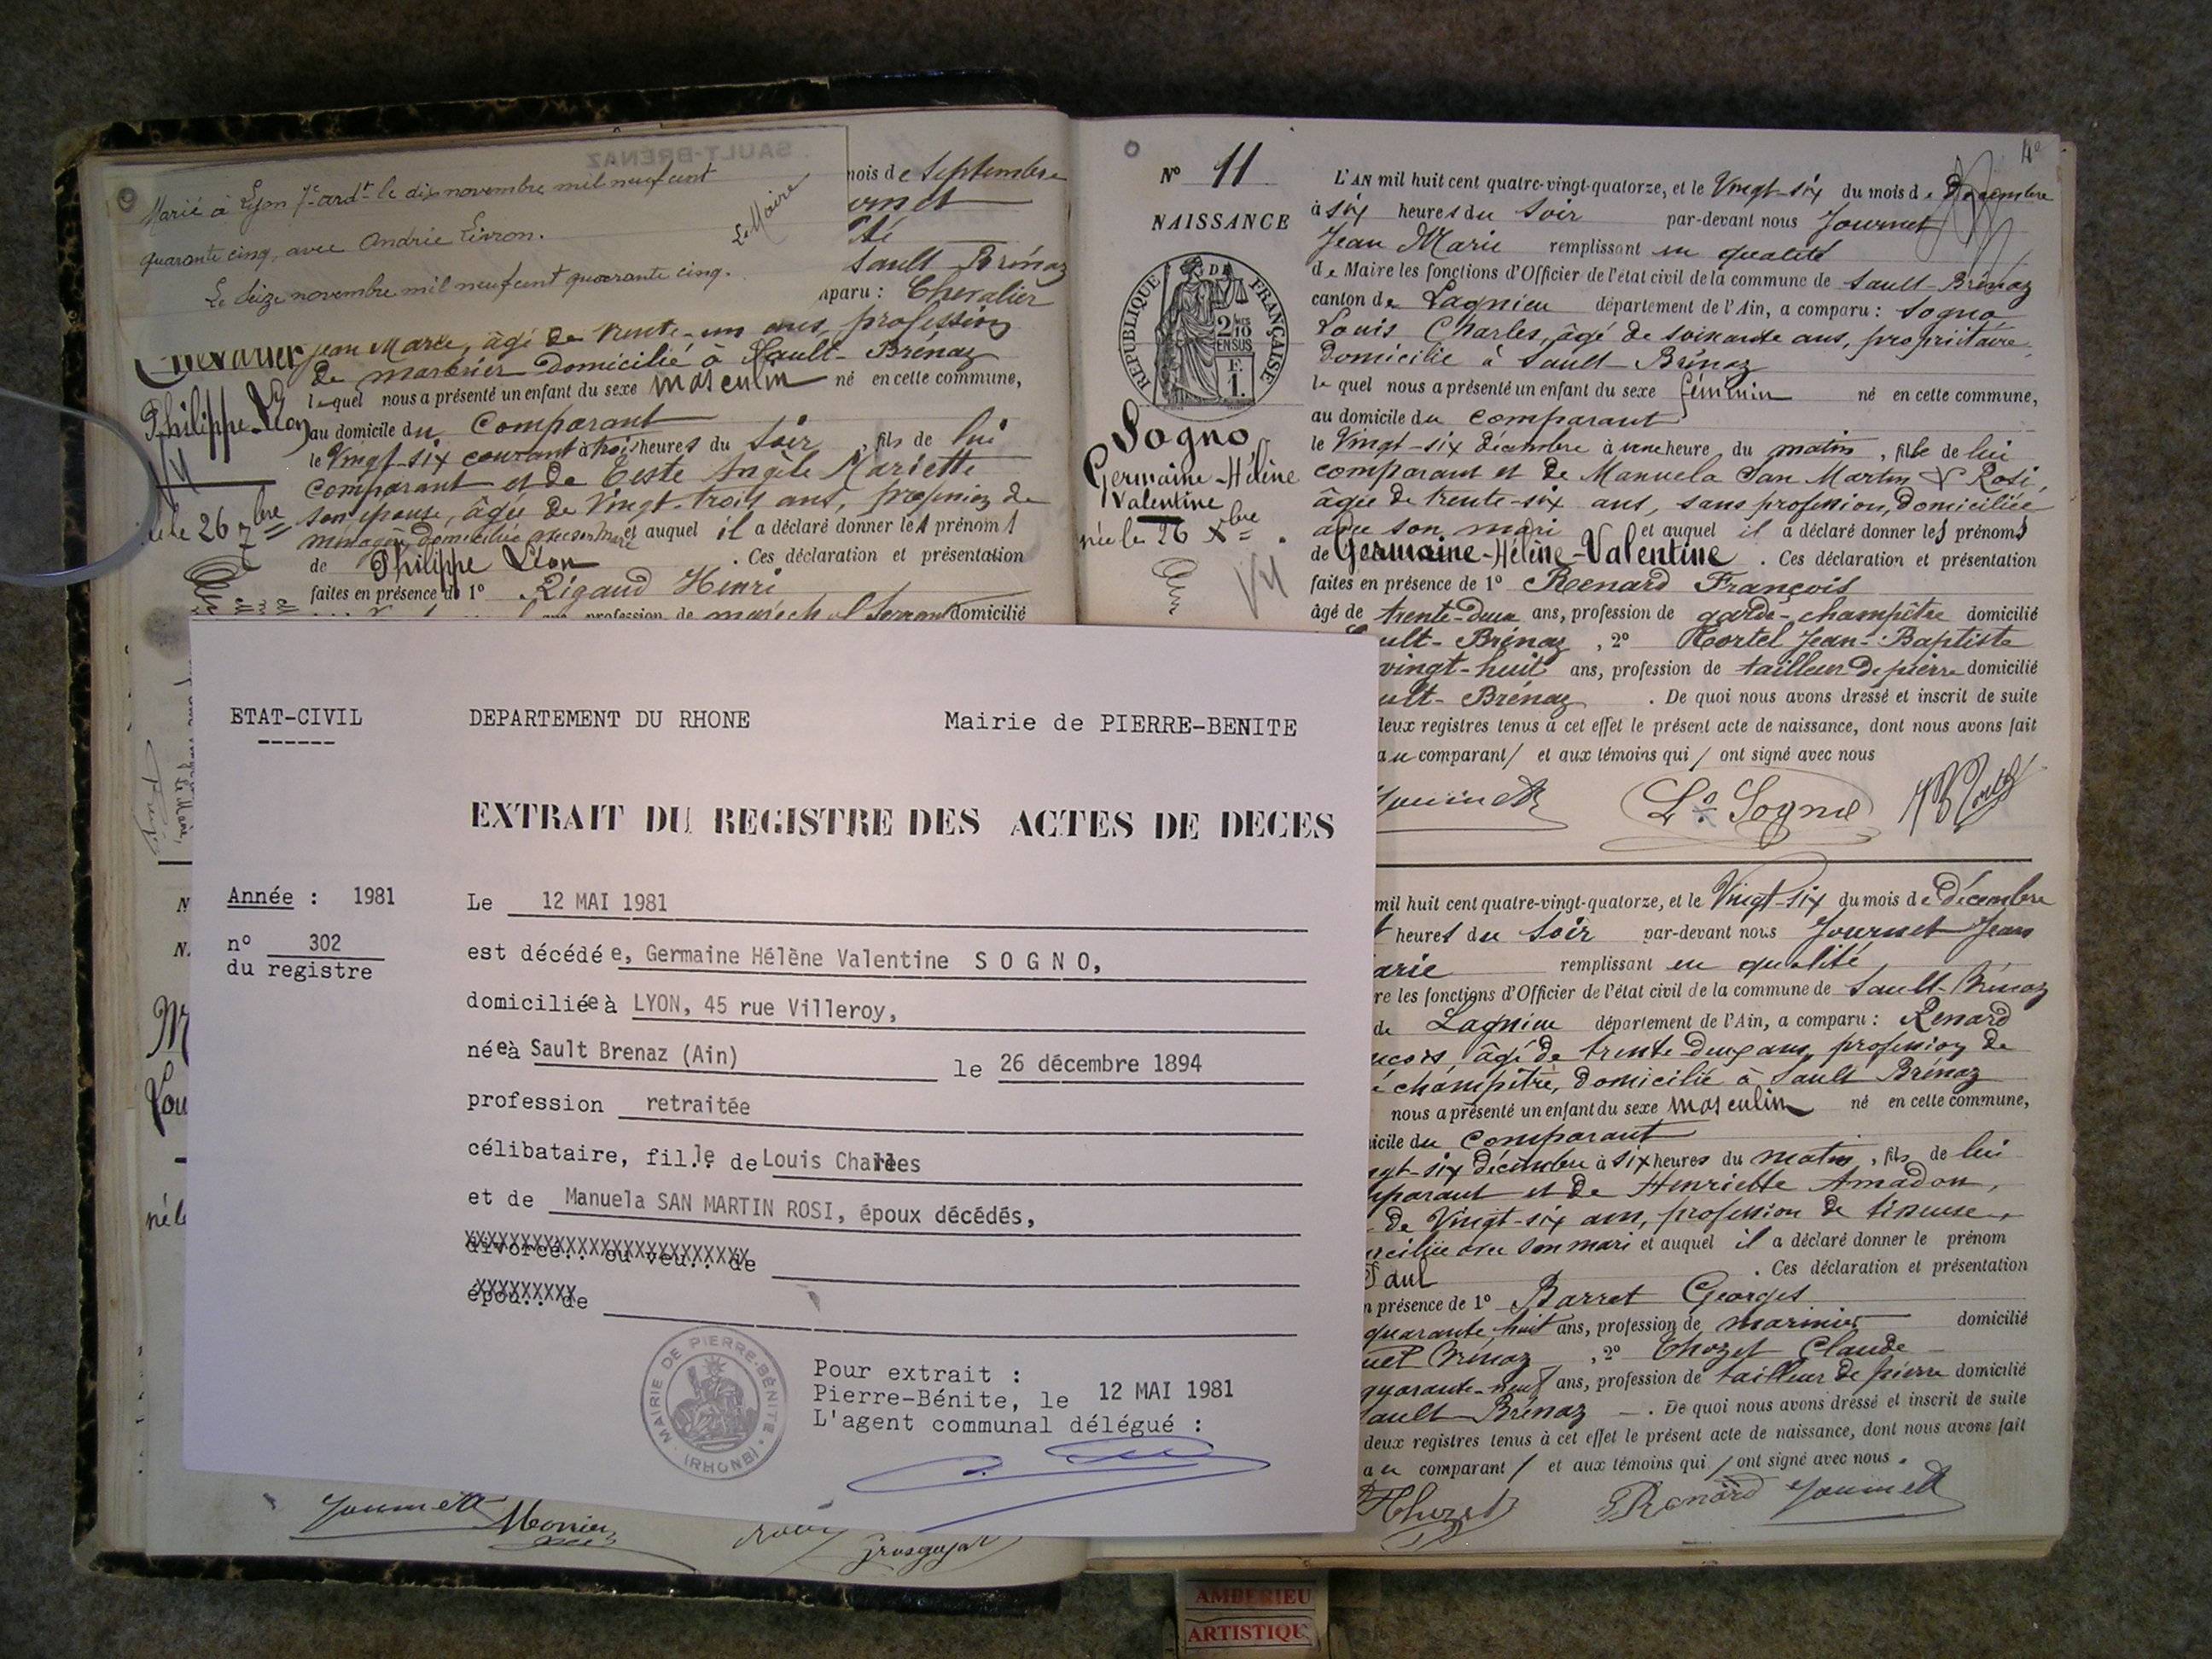 SAULT-BRÉNAZ
Marié à Lyon 7e ardt le dix novembre mil neuf cent
quarante cinq, avec Andrée Livron.
Le seize novembre mil neuf cent quarante cinq.
Le Maire
mois de Septembre
Sault-Brénaz
paru : Chevalier
Jean Marie, âgé de trente-un ans, profession
de marinier domicilié à Sault-Brénaz
lequel nous a présenté un enfant du sexe masculin né en cette commune,
au domicile du Comparant
le Vingt-six courant à trois heures du soir, fils de lui
comparant et de Teste Angèle Mariette
son épouse, âgée de vingt-trois ans, profession de
ménagère, domiciliée avec son mari et auquel il a déclaré donner les prénoms
de Philippe Léon . Ces déclaration et présentation
faites en présence de 1º Rigaud Henri
ans, profession de domicilié
Chevalier
Philippe-Léon
né le 26 7bre
ETAT-CIVIL
DEPARTEMENT DU RHONE
Mairie de PIERRE-BENITE
EXTRAIT DU REGISTRE DES ACTES DE DECES
Année : 1981
nº 302
du registre
Le 12 MAI 1981
est décédée, Germaine Hélène Valentine S O G N O,
domiciliée à LYON, 45 rue Villeroy,
née à Sault Brenaz (Ain) le 26 décembre 1894
profession retraitée
célibataire, fil.le de Louis Charles
et de Manuela SAN MARTIN ROSI, époux décédés,
divorcé.. ou veu.. de
épou.. de
Pour extrait :
Pierre-Bénite, le 12 MAI 1981
L'agent communal délégué :
MAIRIE DE PIERRE-BÉNITE
(RHONE)
Nº 11
NAISSANCE
RÉPUBLIQUE FRANÇAISE
2/10 EN SUS
F. 1.
Sogno
Germaine-Hélène
Valentine
née le 26 Xbre
L'AN mil huit cent quatre-vingt-quatorze, et le Vingt-six du mois de Décembre
à six heures du Soir par-devant nous Journet
Jean Marie remplissant en qualité
de Maire les fonctions d'Officier de l'état civil de la commune de Sault-Brénaz
canton de Lagnieu département de l'Ain, a comparu : Sogno
Louis Charles, âgé de soixante ans, propriétaire
domicilié à Sault-Brénaz
lequel nous a présenté un enfant du sexe féminin né en cette commune,
au domicile du comparant
le Vingt-six décembre à une heure du matin, fille de lui
comparant et de Manuela San Martin Rosi,
âgée de trente-six ans, sans profession, domiciliée
avec son mari et auquel il a déclaré donner les prénoms
de Germaine-Hélène-Valentine . Ces déclaration et présentation
faites en présence de 1º Renard François
âgé de trente-deux ans, profession de garde-champêtre domicilié
ult-Brénaz , 2º Jean-Baptiste
vingt-huit ans, profession de tailleur de pierre domicilié
ult-Brénaz . De quoi nous avons dressé et inscrit de suite
deux registres tenus à cet effet le présent acte de naissance, dont nous avons fait
au comparant / et aux témoins qui / ont signé avec nous
Journet
Ls Sogno
mil huit cent quatre-vingt-quatorze, et le Vingt-six du mois de Décembre
heures du Soir par-devant nous Journet Jean
arie remplissant en qualité
re les fonctions d'Officier de l'état civil de la commune de Sault-Brénaz
de Lagnieu département de l'Ain, a comparu : Renard
ançois âgé de trente deux ans, profession de
champêtre, domicilié à Sault Brénaz
nous a présenté un enfant du sexe masculin né en cette commune,
icile du comparant
ngt-six décembre à six heures du matin, fils de lui
mparant et de Henriette Amadon,
de Vingt-six ans, profession de tisseuse,
iciliée avec son mari et auquel il a déclaré donner le prénom
Paul . Ces déclaration et présentation
n présence de 1º Barret Georges
quarante huit ans, profession de marinier domicilié
ult Brénaz , 2º Thozet Claude
quarante-neuf ans, profession de tailleur de pierre domicilié
ault-Brénaz . De quoi nous avons dressé et inscrit de suite
deux registres tenus à cet effet le présent acte de naissance, dont nous avons fait
au comparant / et aux témoins qui / ont signé avec nous.
Thozet
Renard
Journet
Journet
Monier
AMBERIEU
ARTISTIQU